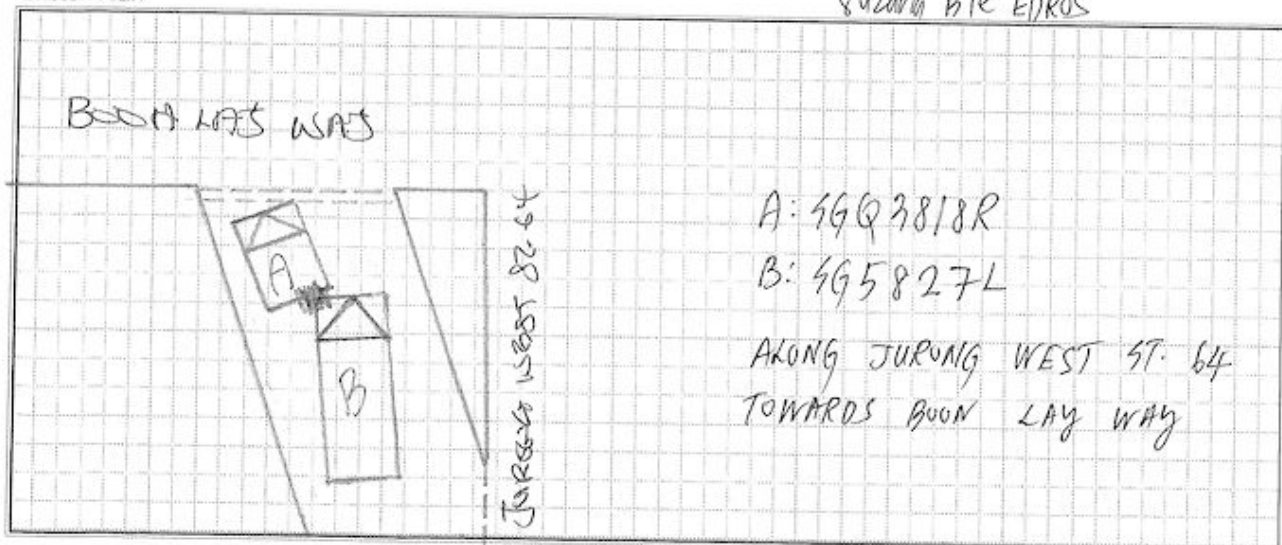 BTE EDROS
BOON LAY WAY
A
B
JURONG WEST ST. 64
A: SGQ3818R
B: SG5827L
ALONG JURONG WEST ST. 64
TOWARDS BOON LAY WAY